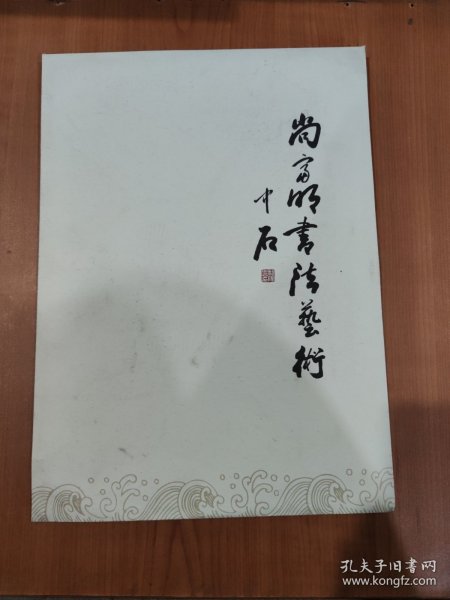 尚富明書法藝術
中石
孔夫子旧书网
www.kongfz.com